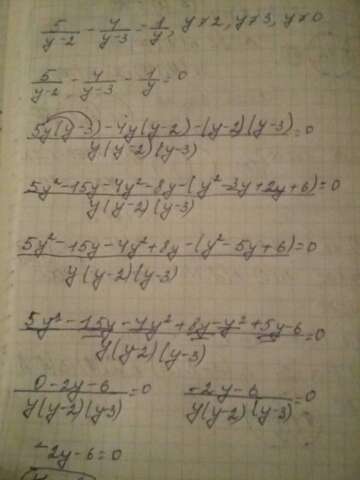 5/(y-2) - 4/(y-3) = 1/y, y≠2, y≠3, y≠0
5/(y-2) - 4/(y-3) - 1/y = 0
(5y(y-3) - 4y(y-2) - (y-2)(y-3))/(y(y-2)(y-3)) = 0
(5y² - 15y - 4y² - 8y - (y² - 3y + 2y + 6))/(y(y-2)(y-3)) = 0
(5y² - 15y - 4y² + 8y - (y² - 5y + 6))/(y(y-2)(y-3)) = 0
(5y² - 15y - 4y² + 8y - y² + 5y - 6)/(y(y-2)(y-3)) = 0
(0 - 2y - 6)/(y(y-2)(y-3)) = 0 (-2y - 6)/(y(y-2)(y-3)) = 0
-2y - 6 = 0